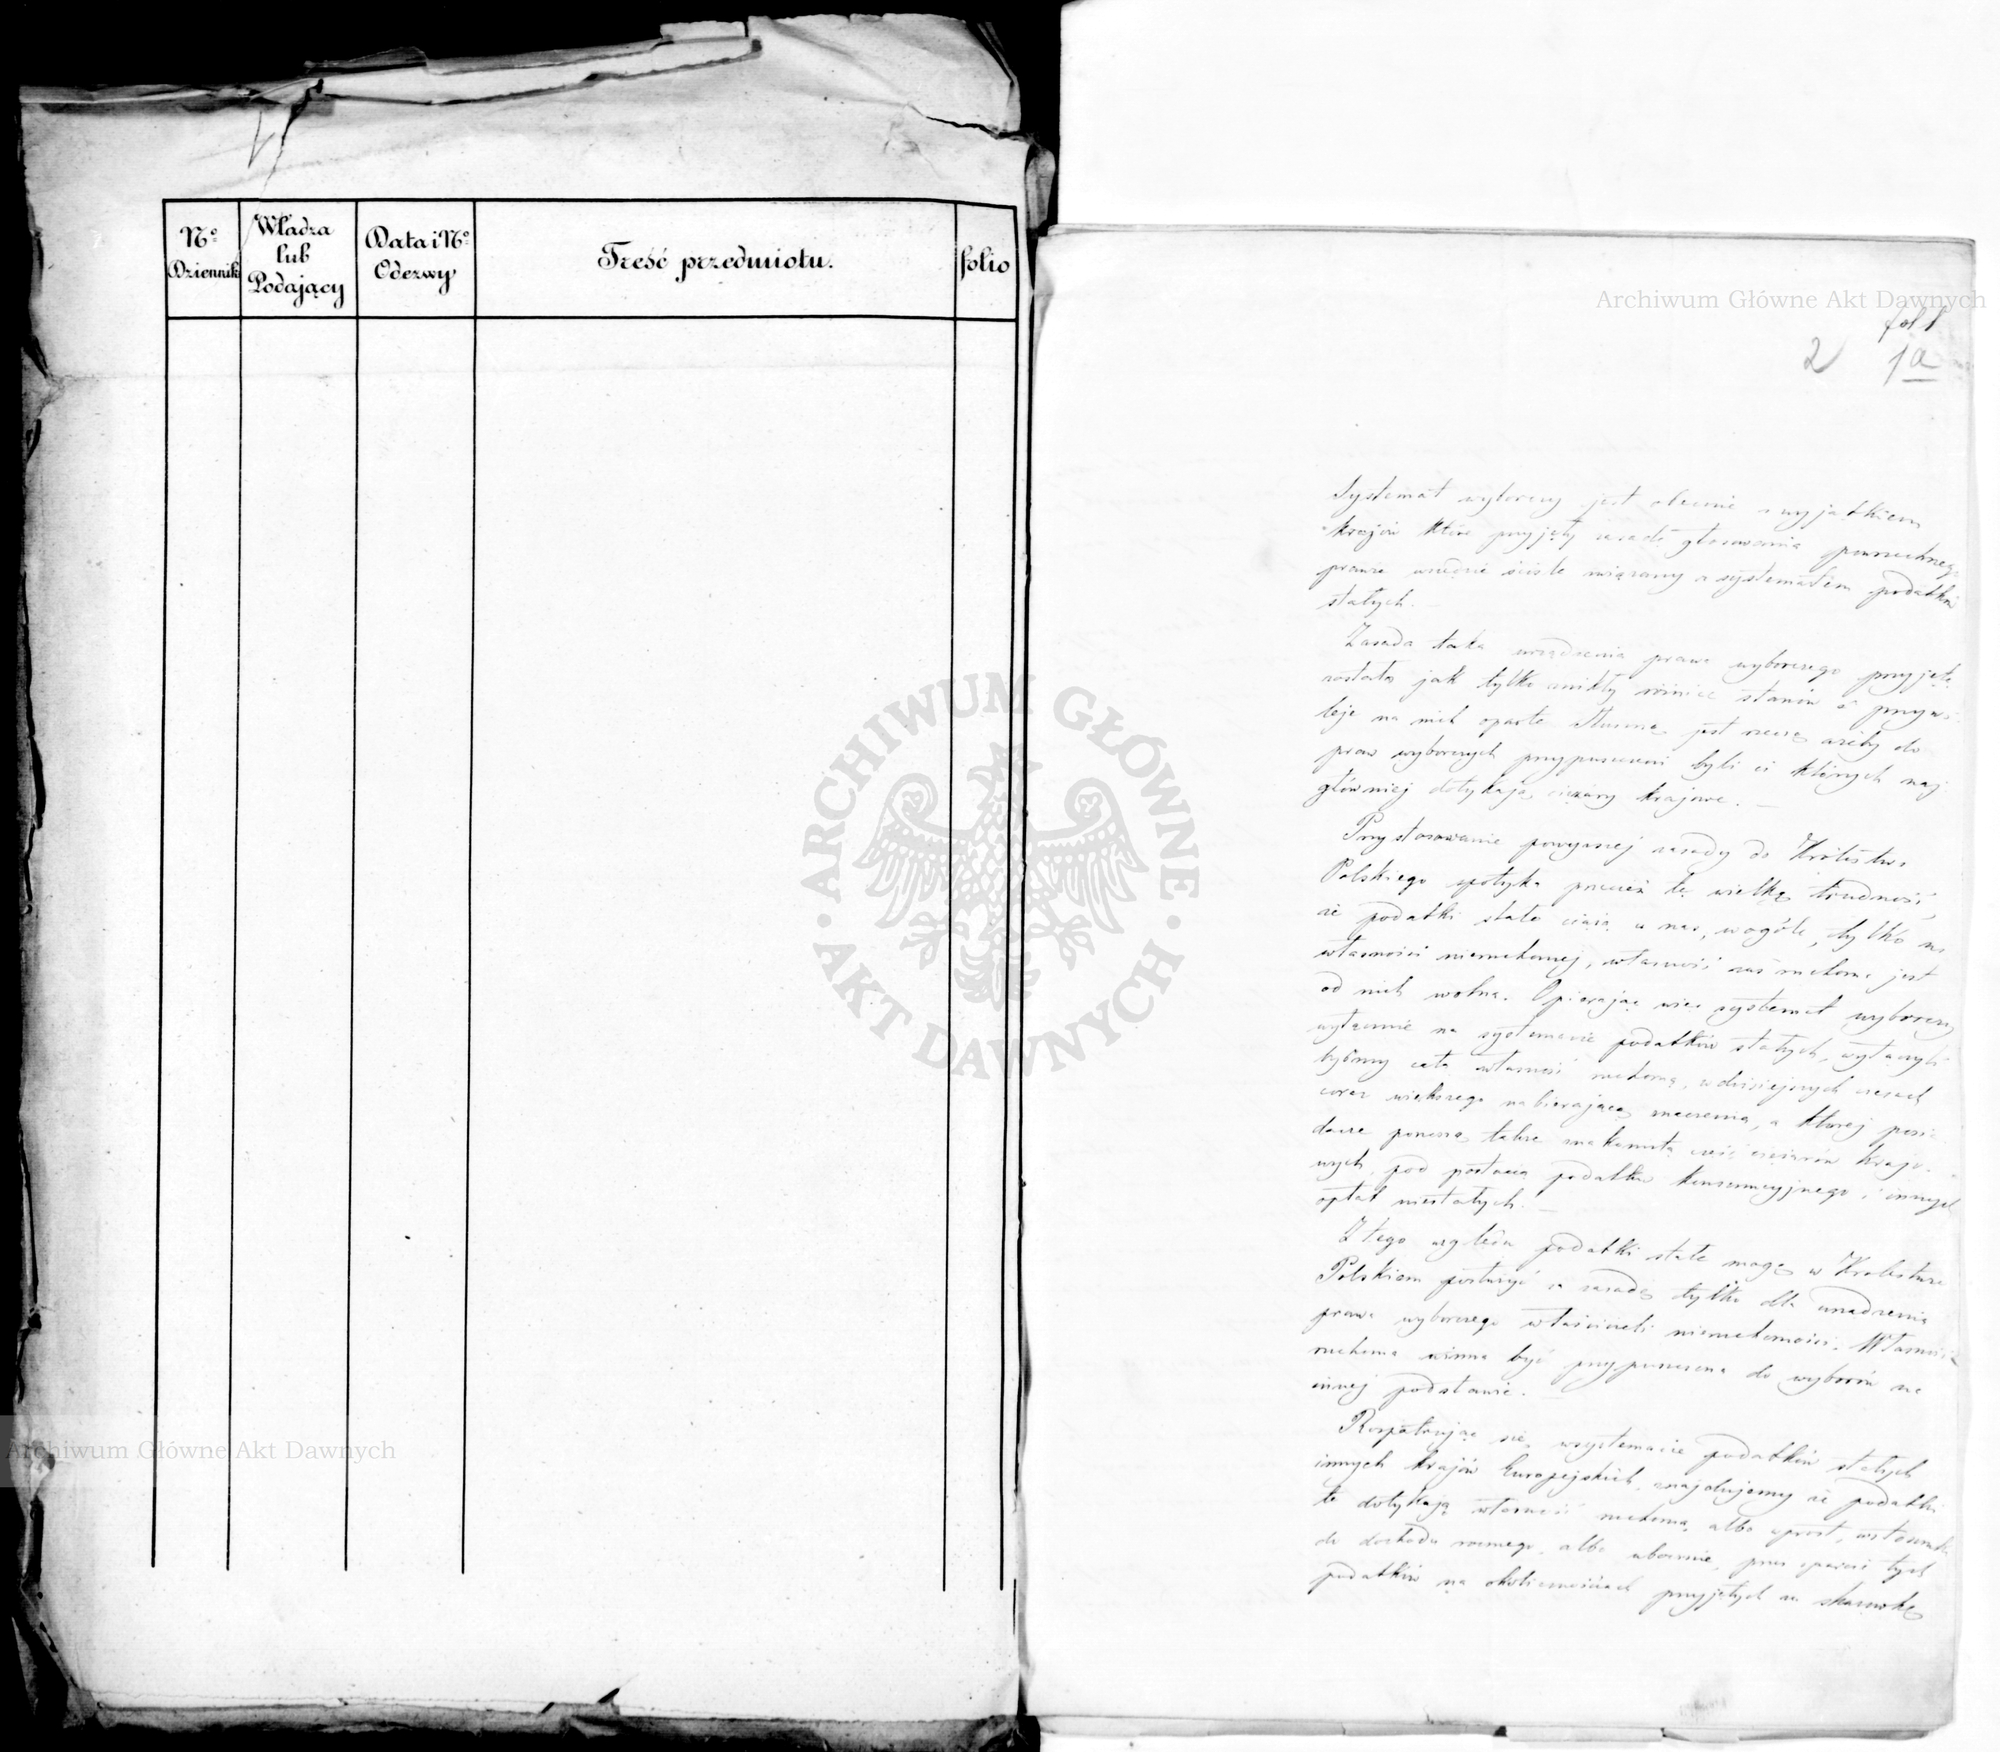 Nº Dziennika
Władza lub Podający
Data i Nº Odezwy
Treść przedmiotu.
folio
Archiwum Główne Akt Dawnych
fol 1
2 1a
Systemat wyborczy jest obecnie z wyjątkiem
krajów które przyjęły zasadę głosowania powszechnego
prawie wszędzie ściśle związany z systematem podatków
stałych.
Zasada taka urządzenia prawa wyborczego przyjętą
została jak tylko znikły różnice stanów i przywi
leje na nich oparte. Słuszną jest rzeczą ażeby do
praw wyborczych przypuszczeni byli ci których naj
główniej dotykają ciężary krajowe. —
Przystosowanie powyższej zasady do Królestwa
Polskiego spotyka przecież tę wielką trudność,
że podatki stałe ciążą u nas, wogóle, tylko na
własności nieruchomej, własność zaś ruchoma jest
od nich wolna. Opierając więc systemat wyborczy
wyłącznie na systemacie podatków stałych, wyłączyli
byśmy całą własność ruchomą, w dzisiejszych czasach
coraz większego nabierającą znaczenia, a której posia
dacze ponoszą także znakomitą część ciężarów krajo
wych, pod postacią podatku konsumcyjnego i innych
opłat niestałych. —
Z tego względu podatki stałe mogą w Królestwie
Polskiem posłużyć za zasadę tylko dla urządzenia
prawa wyborczego właścicieli nieruchomości. Własność
ruchoma winna być przypuszczona do wyborów na
innej podstawie.
Rozpatrując się w systemacie podatków stałych
innych krajów Europejskich, znajdujemy że podatki
te dotykają własność ruchomą albo wprost, w stosunku
do dochodu rocznego, albo ubocznie, przez oparcie tych
podatków na okolicznościach przyjętych za skazówkę
ARCHIWUM GŁÓWNE · AKT DAWNYCH ·
Archiwum Główne Akt Dawnych